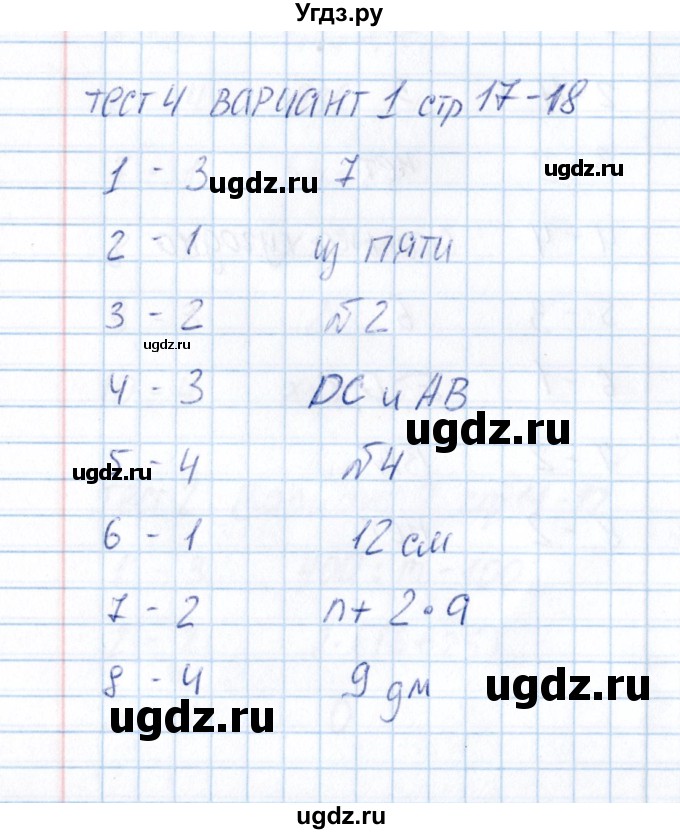 Угдз.ру
тест 4 вариант 1 стр 17-18
1 - 3 7
ugdz.ru
ugdz.ru
2 - 1 из пяти
3 - 2 №2
ugdz.ru
4 - 3 DC и AB
ugdz.ru
5 - 4 №4
ugdz.ru
6 - 1 12 см
7 - 2 n + 2 • a
8 - 4 9 дм
ugdz.ru
ugdz.ru
ugdz.ru